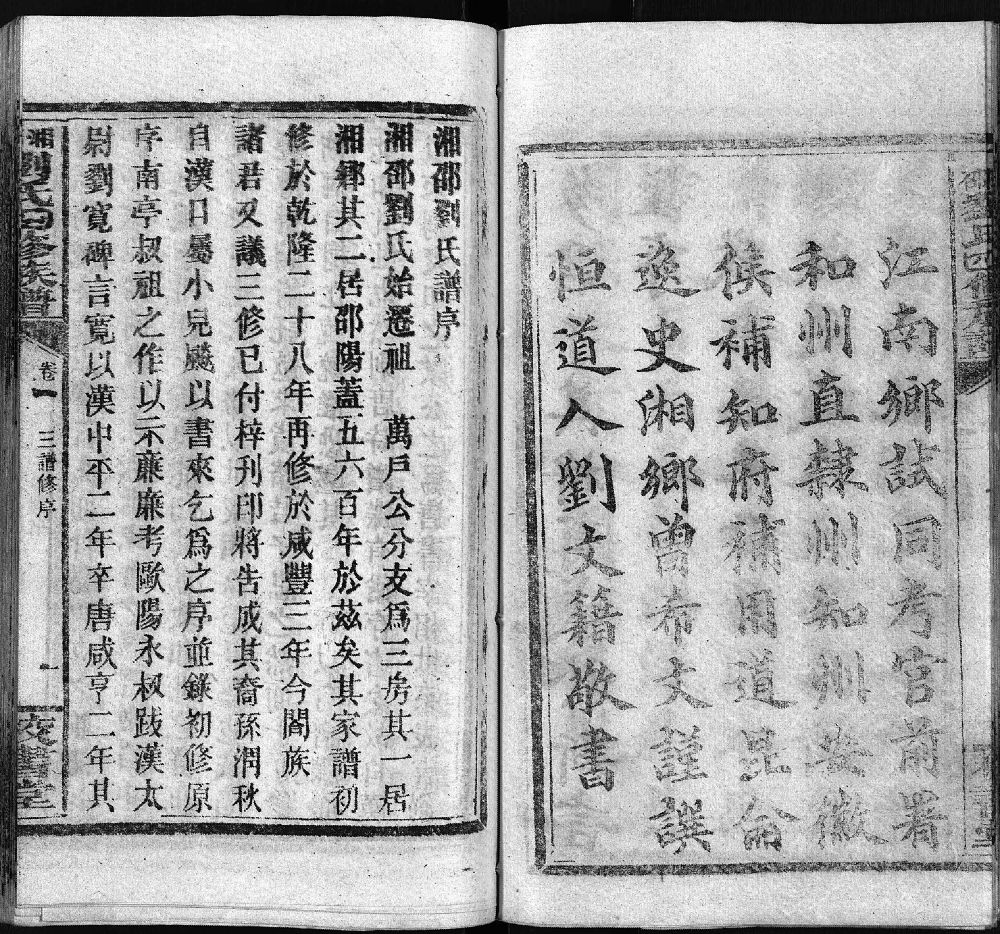 江南鄉試同考官前署
和州直隸州知州安徽
候補知府補用道昆侖
逸史湘鄉曾希文謹譔
恒道人劉文籍敬書
湘邵劉氏譜序
湘邵劉氏始遷祖　萬戶公分支爲三房其一居
湘鄉其二居邵陽蓋五六百年於茲矣其家譜初
修於乾隆二十八年再修於咸豐三年今闔族
諸君又議三修已付梓刊印將告成其裔孫潤秋
自漢口屬小兒颺以書來乞爲之序並錄初修原
序南亭叔祖之作以示蔗廉考歐陽永叔跋漢太
尉劉寬碑言寬以漢中平二年卒唐咸亨二年其
湘劉氏四修族譜
卷一
三譜修序
一